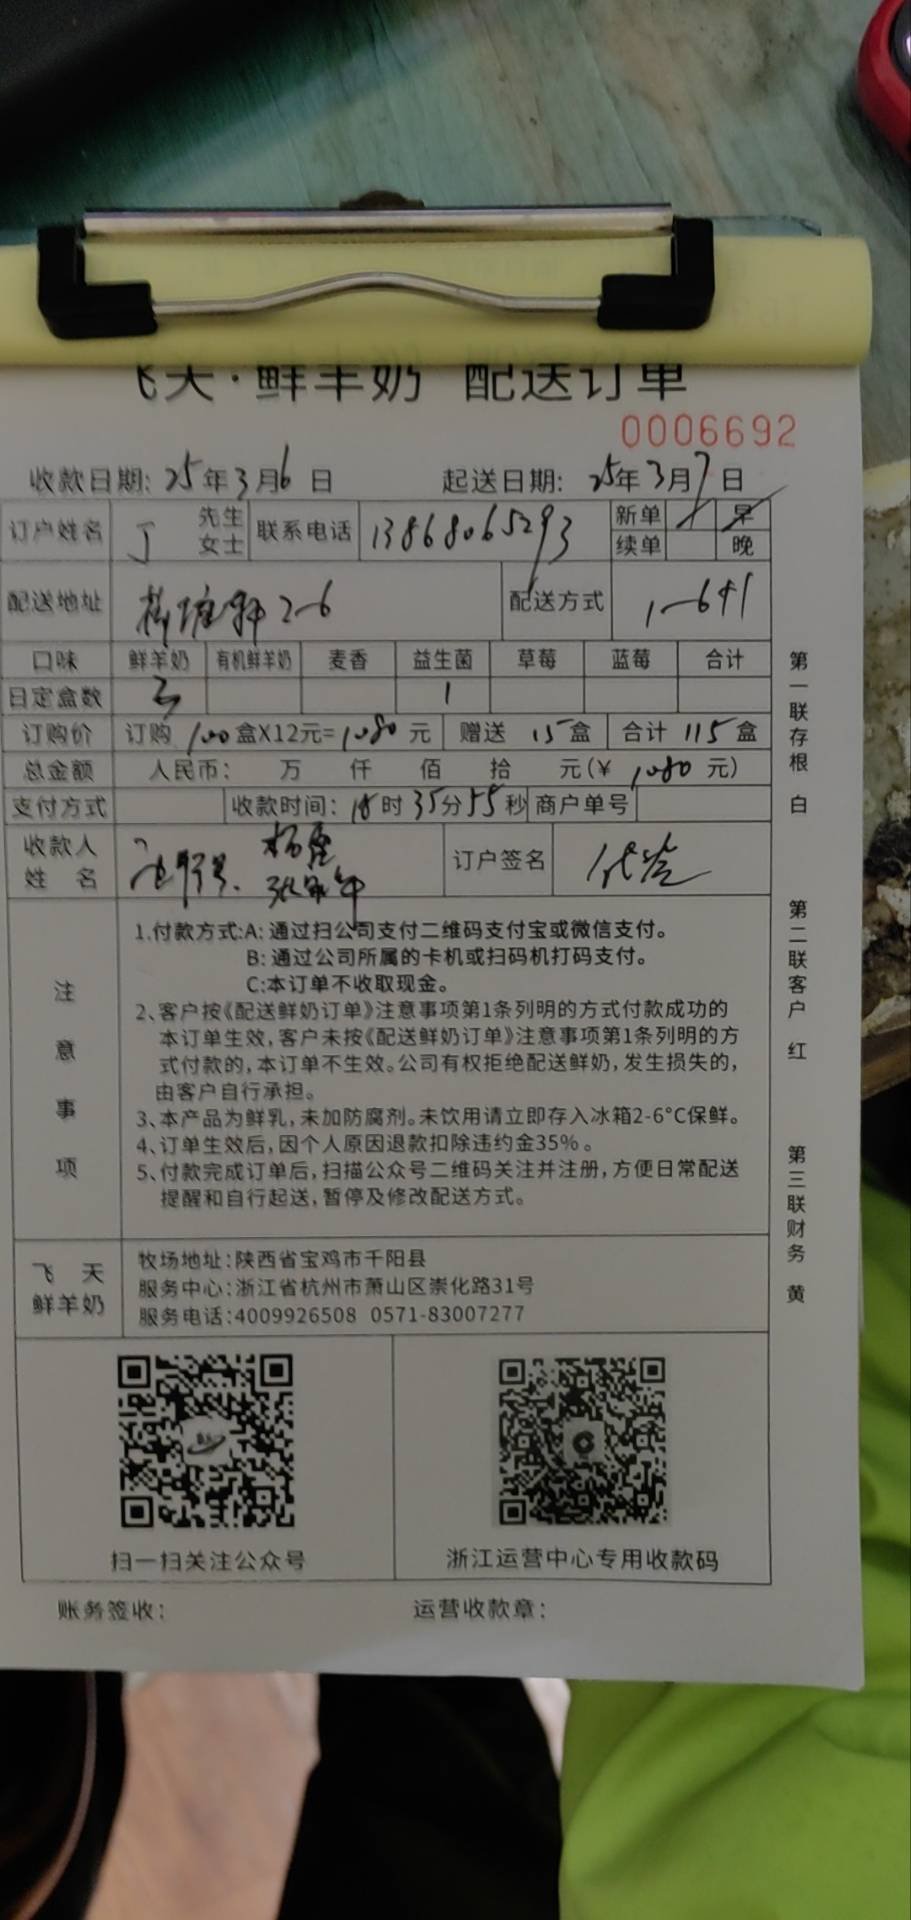 飞天·鲜羊奶 配送订单
0006692
收款日期: 25年3月6日 起送日期: 25年3月7日
订户姓名 丁 先生 女士 联系电话 13868065293 新单 早
续单 晚
配送地址 2-6 配送方式 1-641
口味 鲜羊奶 有机鲜羊奶 麦香 益生菌 草莓 蓝莓 合计
日定盒数 1
订购价 订购 100盒X12元=1080元 赠送 15盒 合计 115盒
总金额 人民币: 万 仟 佰 拾 元(¥ 1080元)
支付方式 收款时间: 18时35分55秒 商户单号
收款人姓名 订户签名
注意事项
1.付款方式:A: 通过扫公司支付二维码支付宝或微信支付。
B: 通过公司所属的卡机或扫码机打码支付。
C:本订单不收取现金。
2、客户按《配送鲜奶订单》注意事项第1条列明的方式付款成功的
本订单生效,客户未按《配送鲜奶订单》注意事项第1条列明的方
式付款的,本订单不生效。公司有权拒绝配送鲜奶,发生损失的,
由客户自行承担。
3、本产品为鲜乳,未加防腐剂。未饮用请立即存入冰箱2-6°C保鲜。
4、订单生效后,因个人原因退款扣除违约金35%。
5、付款完成订单后,扫描公众号二维码关注并注册,方便日常配送
提醒和自行起送,暂停及修改配送方式。
飞天鲜羊奶
牧场地址:陕西省宝鸡市千阳县
服务中心:浙江省杭州市萧山区崇化路31号
服务电话:4009926508 0571-83007277
扫一扫关注公众号 浙江运营中心专用收款码
账务签收: 运营收款章:
第一联存根 白
第二联客户 红
第三联财务 黄